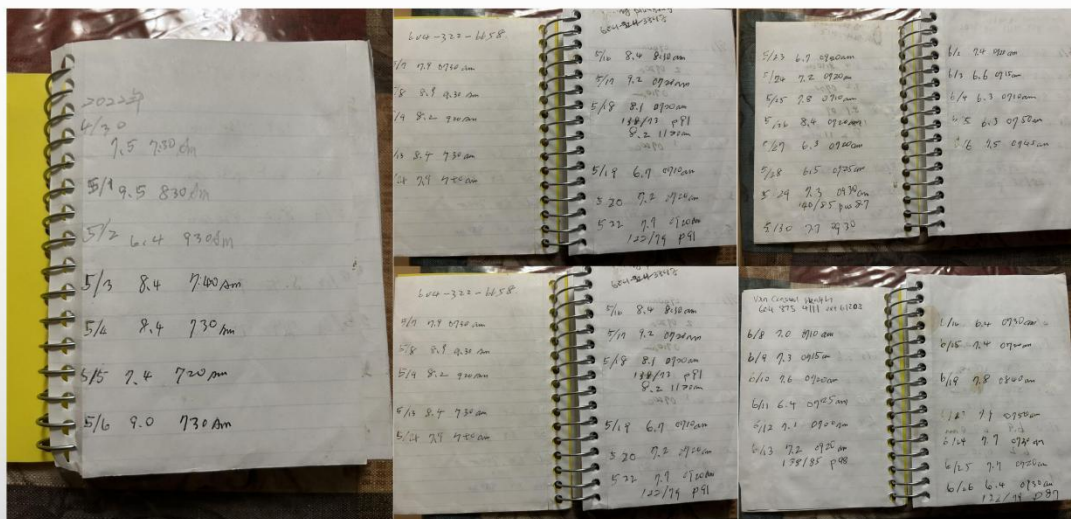 2022年
4/30
7.5 7:30 am
5/1 9.5 830 am
5/2 6.4 930 am
5/3 8.4 7:40 Am
5/4 8.4 730 Am
5/5 7.4 720 Am
5/6 9.0 730 Am
604-322-6658
5/7 7.9 0730 am
5/8 8.9 0830 am
5/9 8.2 920 am
5/13 8.4 730 am
7.9
5/16 8.4 8:30 am
5/17 9.2 0720 am
5/18 8.1 0700 am
138/73 p91
8.2 1120am
5/19 6.7 0710am
5 20 7.2 0720am
5 22 7.7 0720am
122/79 p91
5/23 6.7 0700am
5/24 7.2 0720am
5/25 7.8 0710am
5/26 8.4 0720am
5/27 6.3 0700am
5/28 6.5 0725am
5 29 7.3 0930am
140/85 pus 87
5/30 7.7 0730
6/2 7.4
6/3 6.6 0715am
6/4 6.3 0710am
6/5 6.3 0750am
6/6 7.5 0745am
604-322-6658
5/7 7.9 0730 am
5/8 8.9 0830 am
5/9 8.2 920 am
5/13 8.4 730 am
7.9
5/16 8.4 8:30 am
5/17 9.2 0720 am
5/18 8.1 0700 am
138/73 p91
8.2 1120am
5/19 6.7 0710am
5 20 7.2 0720am
5 22 7.7 0720am
122/79 p91
Van Coastal Health
604 875 4111
6/8 7.0 0710 am
6/9 7.3 0715am
6/10 7.6 0720am
6/11 6.4 0725am
6/12 7.1 0700am
6/13 7.2 0720 am
138/85 p98
6/14 6.4 0730am
6/15 7.4 0720am
6/19 7.8 0840am
7.1 0750am
6/24 7.7 0730am
6/25 7.7 0720am
6/26 6.4 0730am
122/79 p87